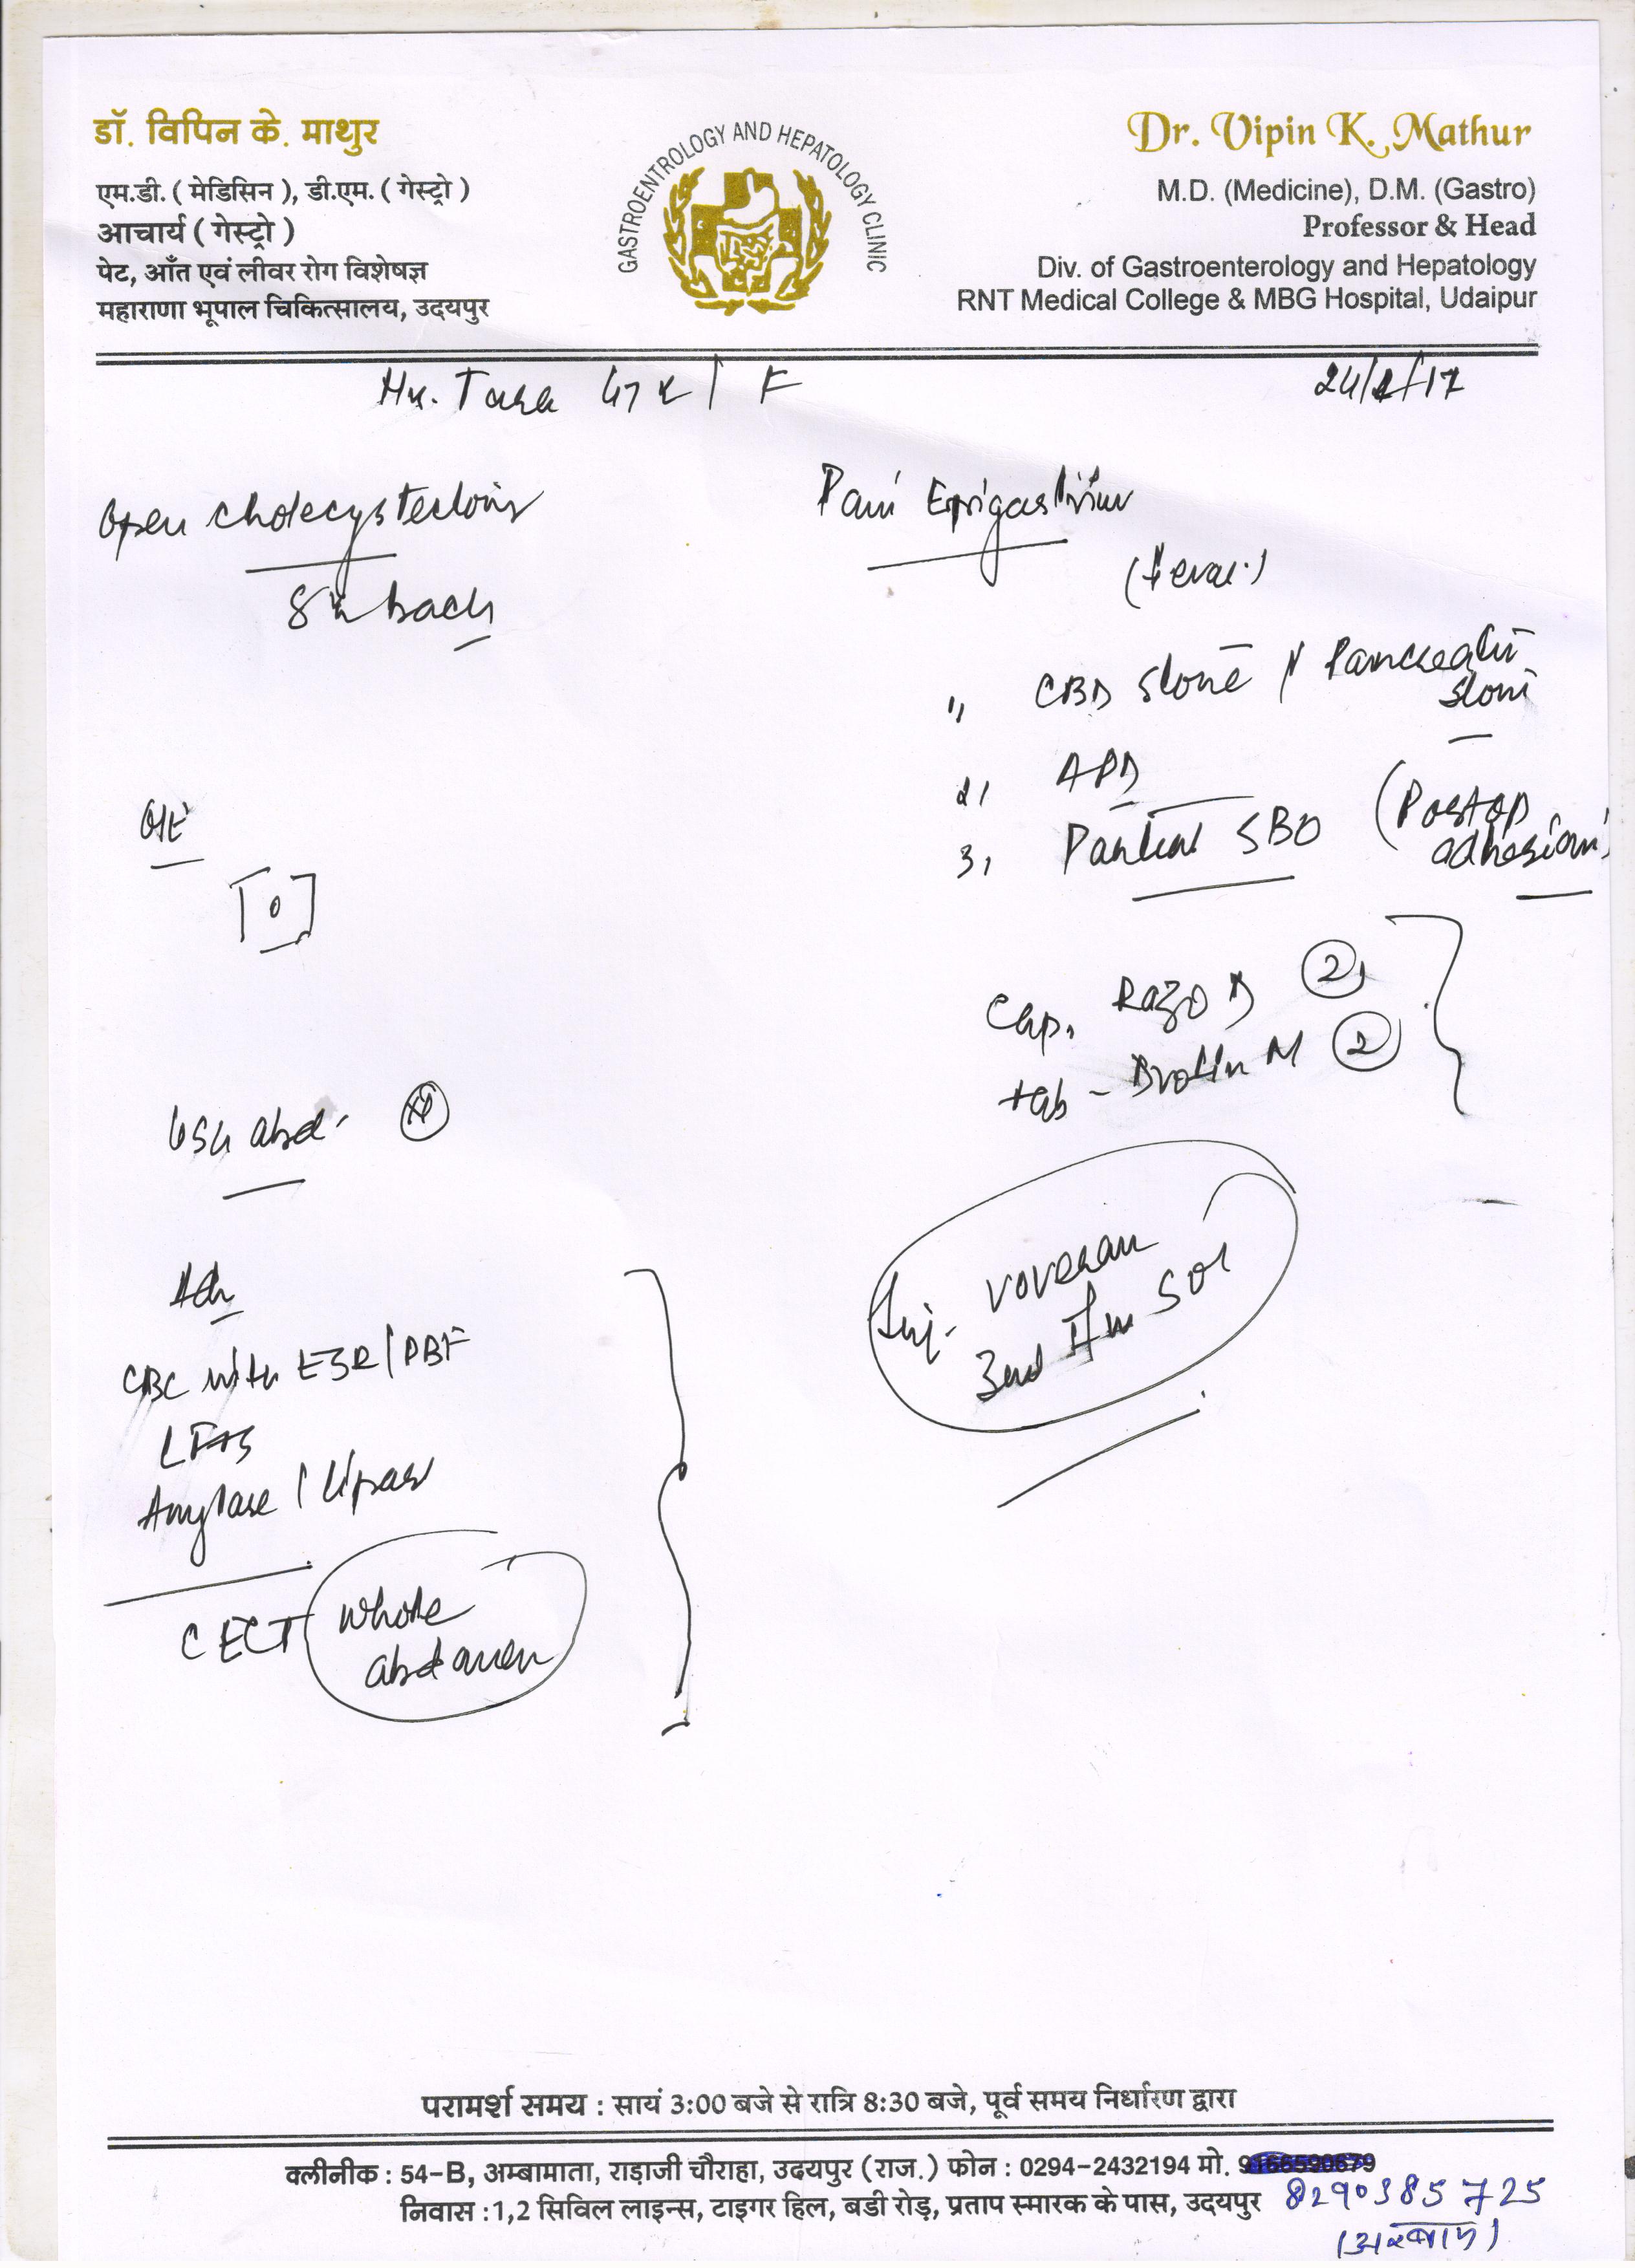 डॉ. विपिन के. माथुर
एम.डी. ( मेडिसिन ), डी.एम. ( गेस्ट्रो )
आचार्य ( गेस्ट्रो )
पेट, आँत एवं लीवर रोग विशेषज्ञ
महाराणा भूपाल चिकित्सालय, उदयपुर
GASTROENTROLOGY AND HEPATOLOGY CLINIC
Dr. Vipin K. Mathur
M.D. (Medicine), D.M. (Gastro)
Professor & Head
Div. of Gastroenterology and Hepatology
RNT Medical College & MBG Hospital, Udaipur
Tara F
Open cholecystectomy
back
O/E
[0]
USG abd.
Adv
CBC with ESR/PBF
LFTs
Amylase / lipase
CECT whole
abdomen
Pain Epigastrium
1, CBD stone / Pancreatic
stone
2, APD
3, Partial SBO (Postop
adhesions)
Cap. Razo D 2
tab - Drotin M 2
Inj. voveran
परामर्श समय : सायं 3:00 बजे से रात्रि 8:30 बजे, पूर्व समय निर्धारण द्वारा
क्लीनीक : 54-B, अम्बामाता, राड़ाजी चौराहा, उदयपुर (राज.) फोन : 0294-2432194 मो.
निवास :1,2 सिविल लाइन्स, टाइगर हिल, बडी रोड़, प्रताप स्मारक के पास, उदयपुर 8290385725